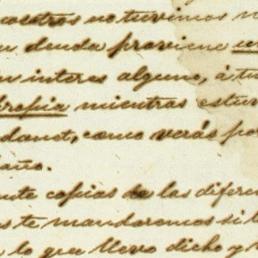 nosotros no tuvimos n
u deuda proviene
un interes alguno, á tu
propia mientras estuv
danot, como verás por
año.
nte copias de las difere
s te mandaremos si l
lo que llevo dicho y